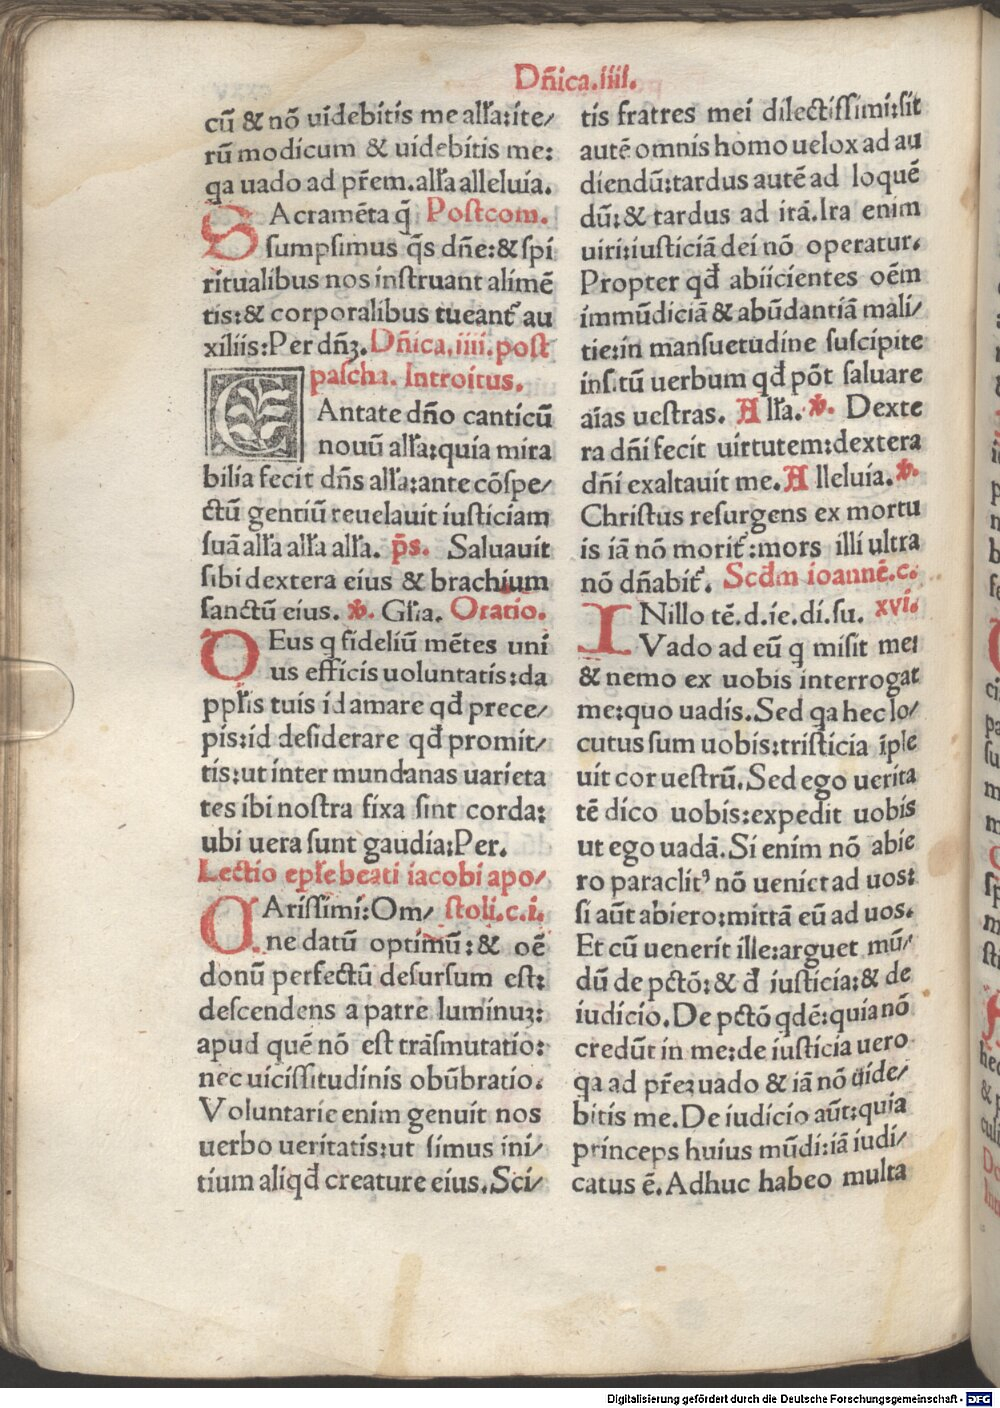 Dn̄ica.iiii.
cū & nō uidebitis me alľa:ite/
rū modicum & uidebitis me:
qa uado ad pr̄em.alľa alleluia.
SAcramēta q̄ Postcom.
sumpsimus q̄s dn̄e:& spi
ritualibus nos instruant alimē
tis:& corporalibus tueant᷑ au
xiliis:Per dn̄ꝫ. Dn̄ica.iiii.post
pascha. Introitus.
CAntate dn̄o canticū
nouū alľa:quia mira
bilia fecit dn̄s alľa:ante cōspe/
ctū gentiū reuelauit iusticiam
suā alľa alľa alľa. p̄s. Saluauit
sibi dextera eius & brachium
sanctū eius. ꝟ. Gľia. Oratio.
DEus q fideliū mētes uni
us efficis uoluntatis:da
ppľis tuis id amare qđ prece/
pis:id desiderare qđ promit/
tis:ut inter mundanas uarieta
tes ibi nostra fixa sint corda:
ubi uera sunt gaudia:Per.
Lectio epľe beati iacobi apo/
CArissimi:Om/ stoli.c.i.
ne datū optimū:& oē
donū perfectū desursum est:
descendens a patre luminuꝫ:
apud quē nō est trāsmutatio:
nec uicissitudinis obūbratio.
Voluntarie enim genuit nos
uerbo ueritatis:ut simus ini/
tium aliqđ creature eius.Sci/
tis fratres mei dilectissimi:sit
autē omnis homo uelox ad au
diendū:tardus autē ad loquē
dū:& tardus ad irā.Ira enim
uiri:iusticiā dei nō operatur.
Propter qđ abiicientes oēm
immūdiciā & abūdantiā mali/
tie:in mansuetudine suscipite
insitū uerbum qđ pōt saluare
aīas uestras. Alľa. ꝟ. Dexte
ra dn̄i fecit uirtutem:dextera
dn̄i exaltauit me. Alleluia. ꝟ.
Christus resurgens ex mortu
is iā nō morit᷑:mors illi ultra
nō dn̄abit᷑. Scđm ioannē.c.
INillo tē.d.ie.di.su. xvi.
Vado ad eū q misit me:
& nemo ex uobis interrogat
me:quo uadis.Sed qa hec lo/
cutus sum uobis:tristicia īple
uit cor uestrū.Sed ego uerita
tē dico uobis:expedit uobis
ut ego uadā.Si enim nō abie
ro paraclitꝰ nō ueniet ad uos:
si aūt abiero:mittā eū ad uos.
Et cū uenerit ille:arguet mū/
dū de pctō:& đ iusticia:& de
iudicio.De pctō qdē:quia nō
credūt in me:de iusticia uero
qa ad pr̄eꝫ uado & iā nō uide/
bitis me.De iudicio aūt:quia
princeps huius mūdi:iā iudi/
catus ē.Adhuc habeo multa
Digitalisierung gefördert durch die Deutsche Forschungsgemeinschaft - DFG